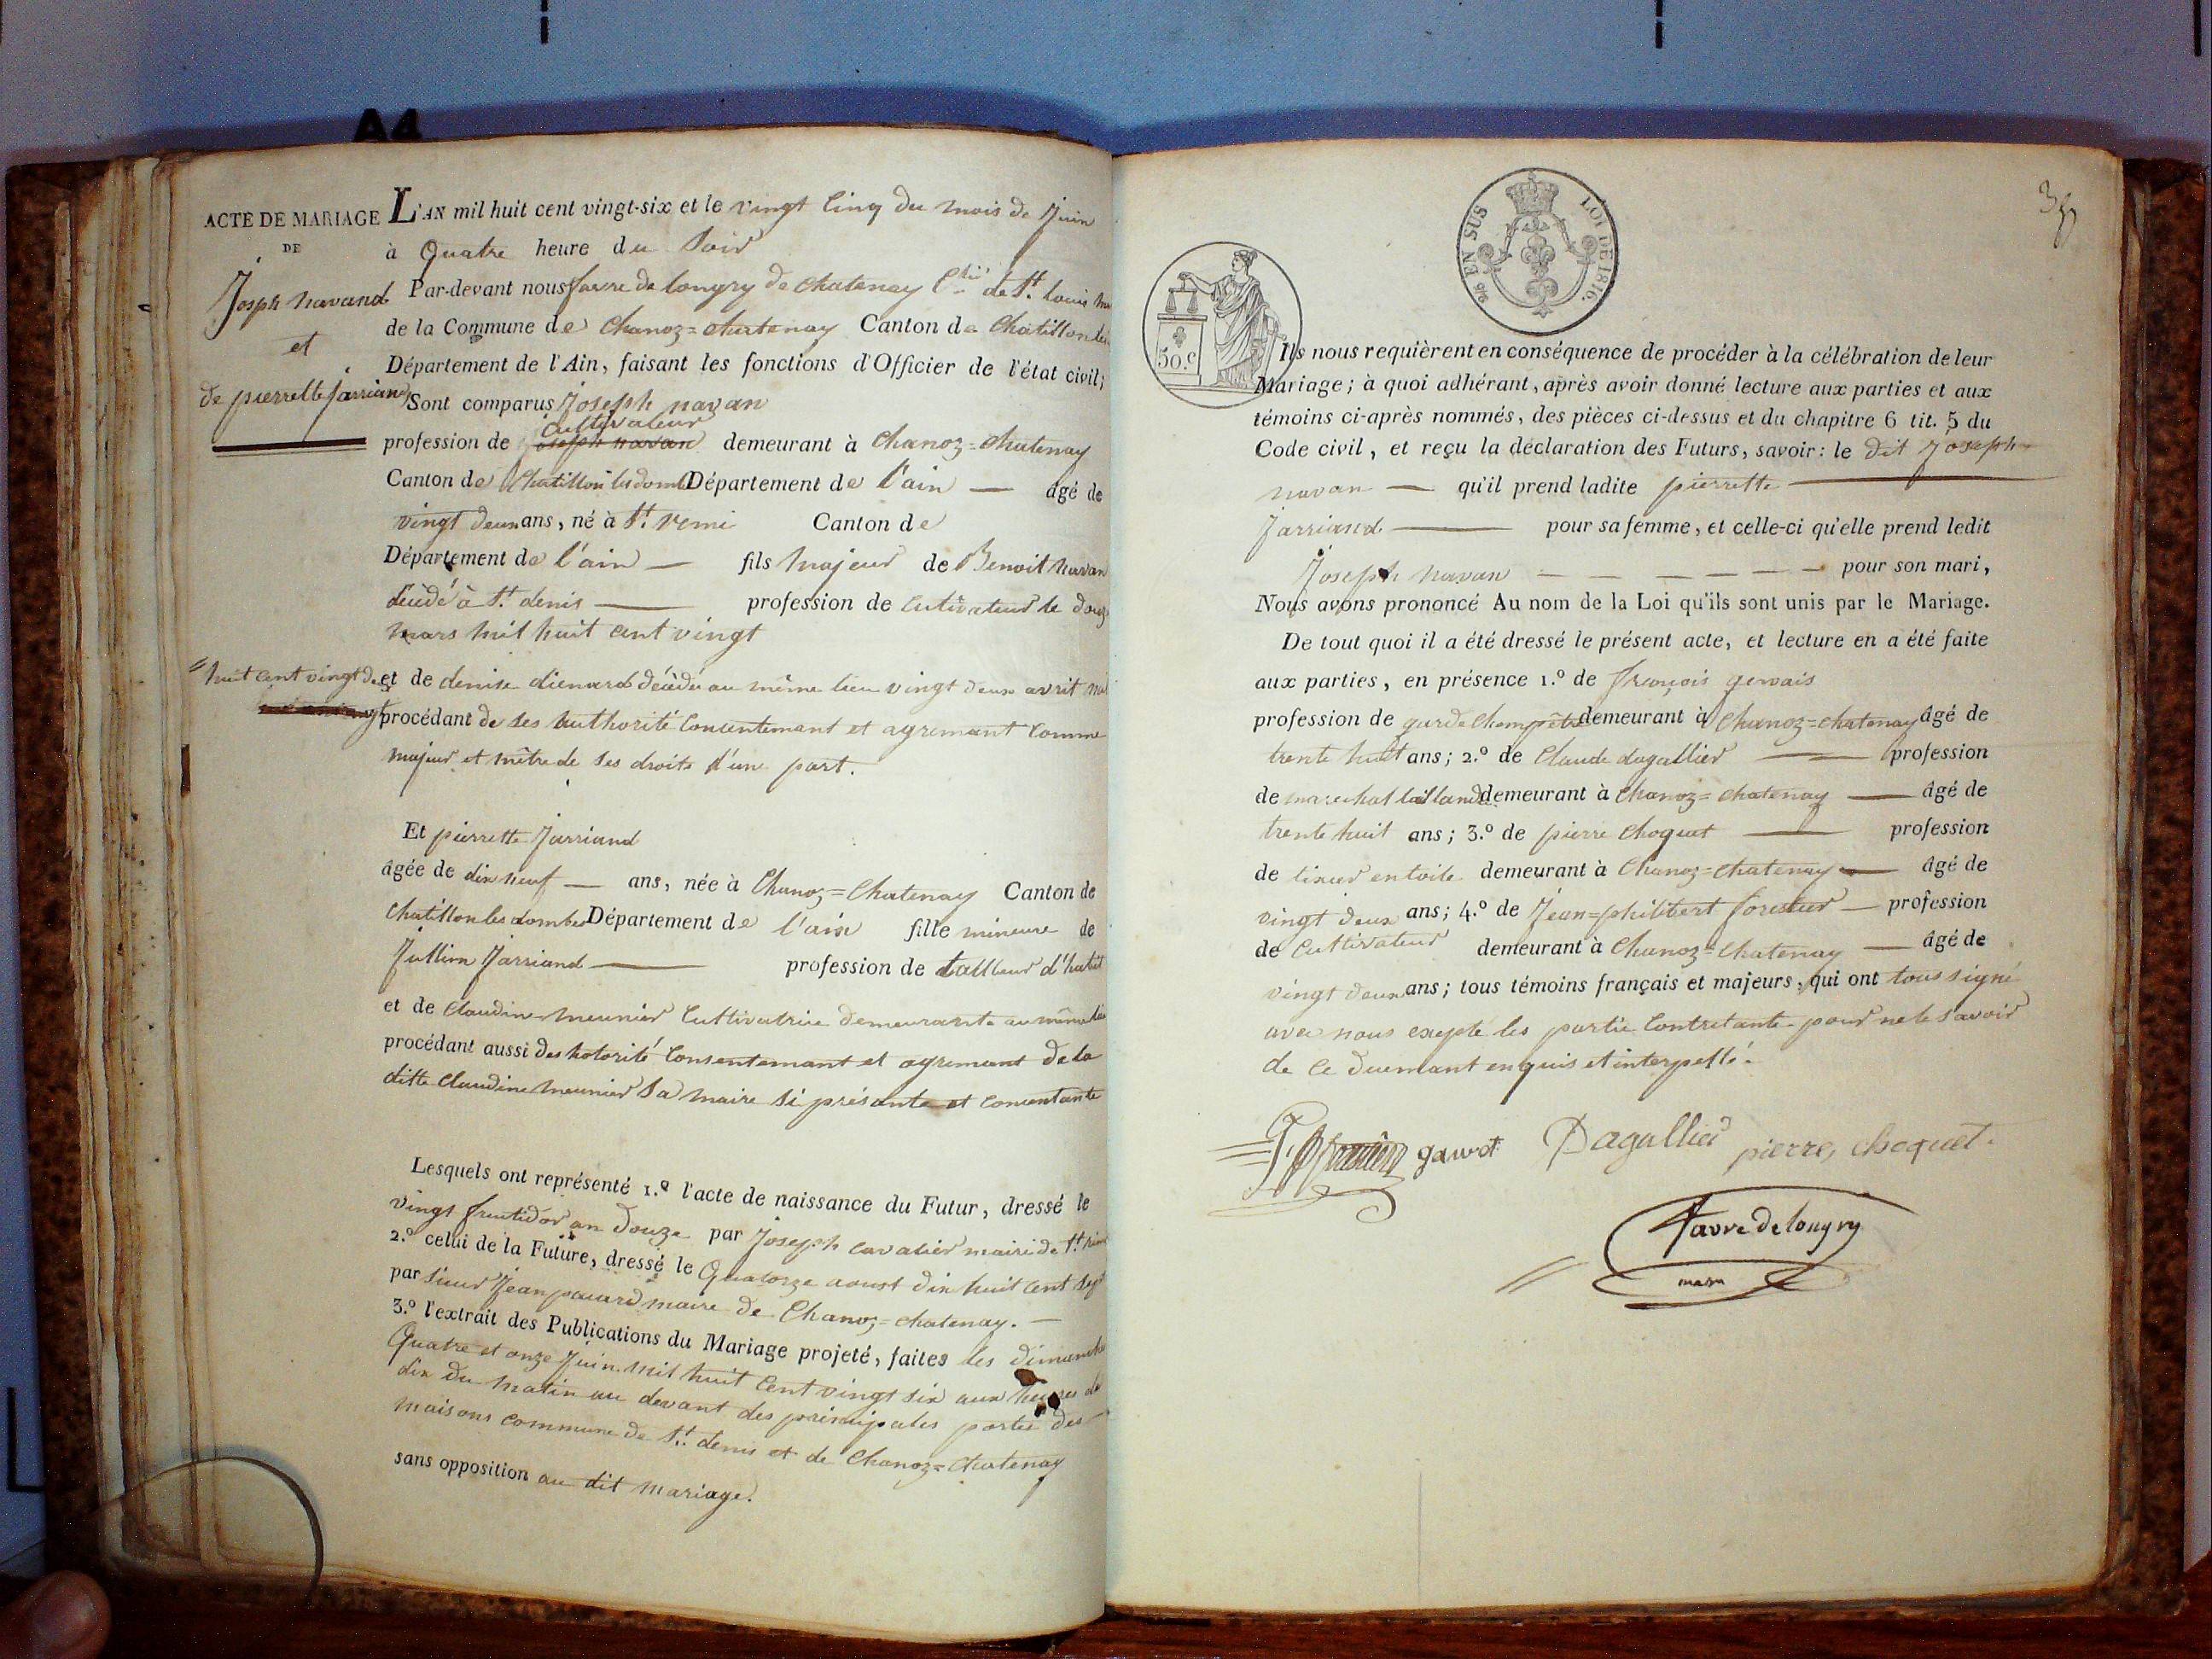 A4
ACTE DE MARIAGE
DE
Joseph navand
et
de pierrette Jarriand
L'AN mil huit cent vingt-six et le vingt Cinq du mois de Juin
à Quatre heure du Soir
Par-devant nous favre de longry de chatenay de St. louis
de la Commune de Chanoz=chatenay Canton de Chatillon
Département de l'Ain, faisant les fonctions d'Officier de l'état civil;
Sont comparus Joseph navan
Cultivateur
profession de Joseph navan demeurant à Chanoz=chatenay
Canton de Chatillon les domb Département de l'ain — âgé de
vingt deux ans, né à St. remi Canton de
Département de l'ain — fils majeur de Benoit navan
décédé à St. denis — profession de Cutivateur le douze
mars mil huit cent vingt
huit cent vingt
et de denise dienard décédé au même lieu vingt deux avrit mil
procédant de ses authorité Concentemant et agremant Comme
majeur et mêtre de ses droits d'une part.
Et pierrette Jarriand
âgée de dix neuf — ans, née à Chanoz=Chatenay Canton de
chatillon les dombes Département de l'ain fille mineure de
Jullien Jarriand — profession de tailleur d'habit
et de Claudine meunier Cultivatrice demeurante au même lieu
procédant aussi des hotorité Consentemant et agremant de la
ditte Claudine meunier Sa maire si présante et Concentante
Lesquels ont représenté 1.º l'acte de naissance du Futur, dressé le
vingt fructidor an douze par Joseph Cavalier maire de St. remi
2.º celui de la Future, dressé le Quatorze aoust dix huit cent sept
par sieur Jean maire de Chanoz=chatenay. —
3.º l'extrait des Publications du Mariage projeté, faites les dimanche
Quatre et onze Juin mil huit Cent vingt six aux heures de
dix du matin au devant des principales portes des
maisons commune de St. denis et de Chanoz=Chatenay
sans opposition au dit mariage.
30.C
95 EN SUS
LOI DE 1816.
Ils nous requièrent en conséquence de procéder à la célébration de leur
Mariage; à quoi adhérant, après avoir donné lecture aux parties et aux
témoins ci-après nommés, des pièces ci-dessus et du chapitre 6 tit. 5 du
Code civil, et reçu la déclaration des Futurs, savoir: le dit Joseph
navan — qu'il prend ladite pierrette —
Jarriand — pour sa femme, et celle-ci qu'elle prend ledit
Joseph navan — — — — — — pour son mari,
Nous avons prononcé Au nom de la Loi qu'ils sont unis par le Mariage.
De tout quoi il a été dressé le présent acte, et lecture en a été faite
aux parties, en présence 1.º de françois gervais
profession de garde Champêtre demeurant à Chanoz=chatenay âgé de
trente huit ans; 2.º de Claude dagallier — profession
de marechal taillandd demeurant à Chanoz=chatenay — âgé de
trente huit ans; 3.º de pierre Choquet — profession
de tixier en toile demeurant à Chanoz=chatenay — âgé de
vingt deux ans; 4.º de Jean=philibert forestier — profession
de Cuttivateur demeurant à Chanoz=Chatenay — âgé de
vingt deux ans; tous témoins français et majeurs, qui ont tous signé
avec nous excepté les partie Contretante pour ne le savoir
de Ce duemant enquis et interpellé.
Dagallier pierre choquet
favre de longry